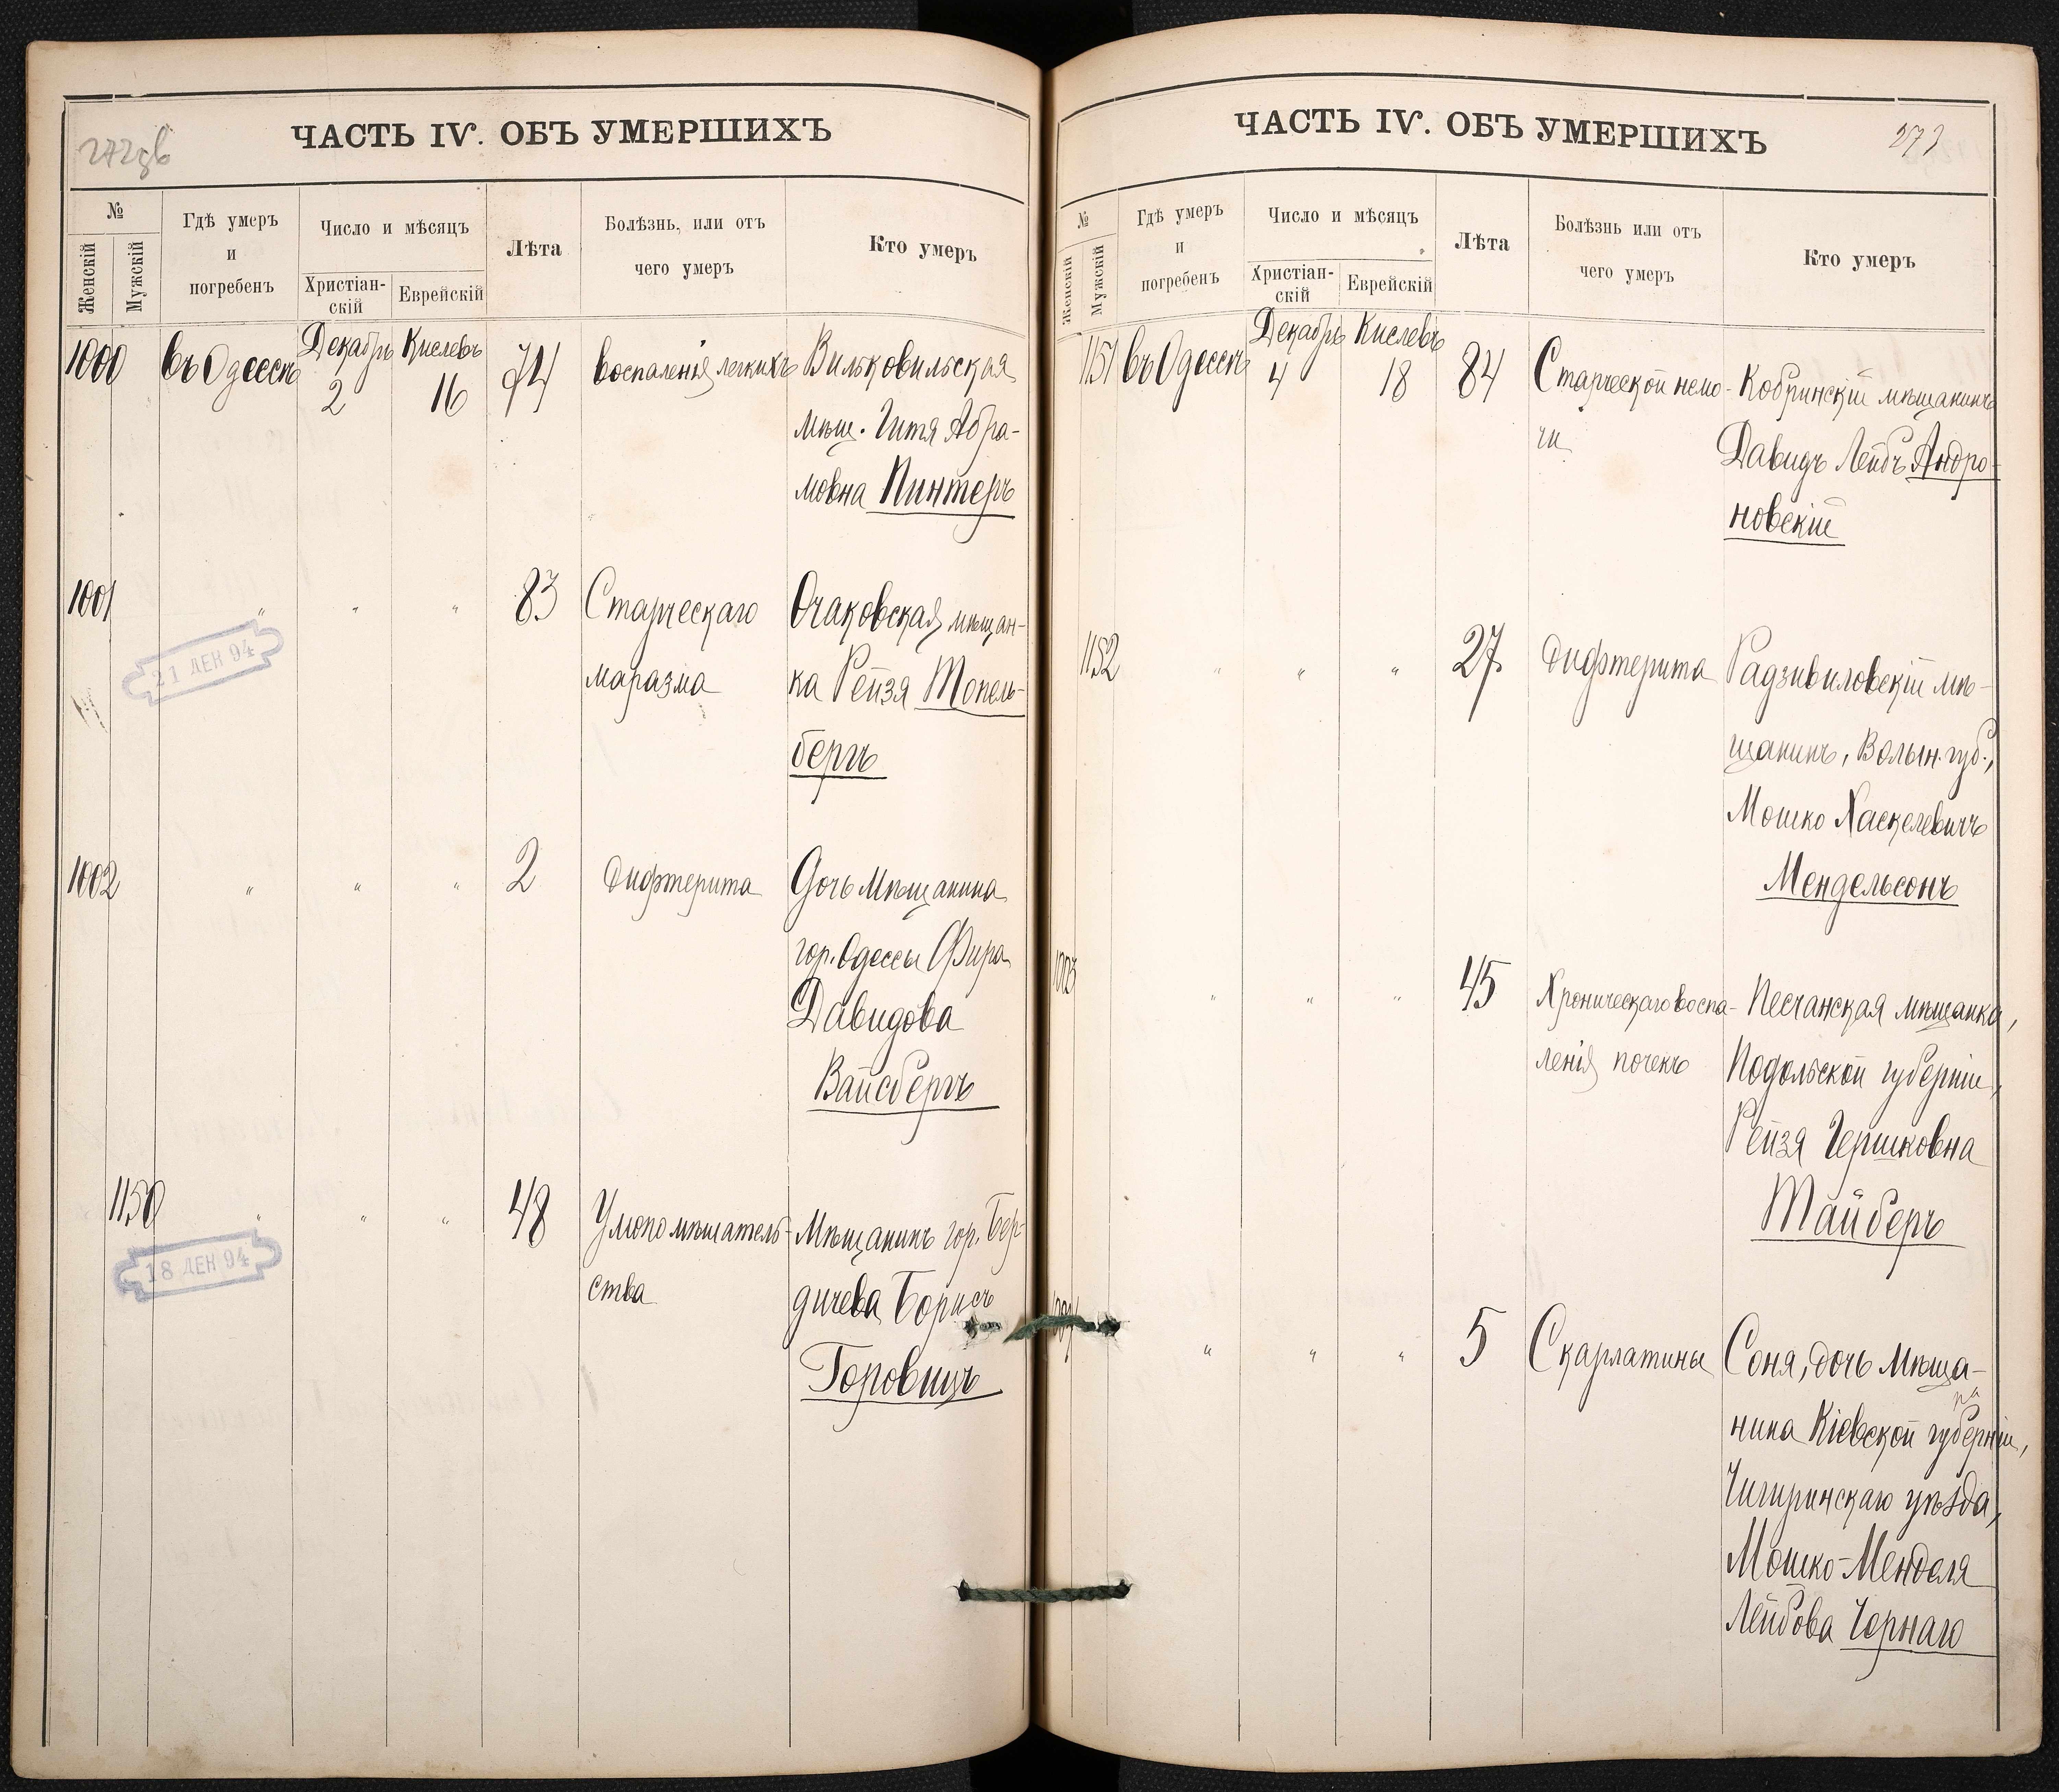 272 об
ЧАСТЬ IV. ОБЪ УМЕРШИХЪ
№
Женскій
Мужскій
Гдѣ умеръ
и
погребенъ
Число и мѣсяцъ
Христіан-
скій
Еврейскій
Лѣта
Болѣзнь, или отъ
чего умеръ
Кто умеръ
1000 въ Одессѣ Декабрь 2 Кислевъ 16 74 воспаленія легкихъ Вильковильская
мѣщ. Гитя Абра-
мовна Пинтеръ
1001 " " " 83 Старческаго Очаковская мѣщан-
маразма ка Рейзя Топель-
бергъ
21 ДЕК 94
1002 " " " 2 Дифтерита Дочь мѣщанина
гор. Одессы Фира
Давидова
Вайсбергъ
1150 " " " 48 Умопомѣшатель- Мѣщанинъ гор. Бер-
ства дичева Борисъ
Горовицъ
18 ДЕК 94
273
ЧАСТЬ IV. ОБЪ УМЕРШИХЪ
№
Женскій
Мужскій
Гдѣ умеръ
и
погребенъ
Число и мѣсяцъ
Христіан-
скій
Еврейскій
Лѣта
Болѣзнь или отъ
чего умеръ
Кто умеръ
1151 въ Одессѣ Декабрь 4 Кислевъ 18 84 Старческой немо- Кобринскій мѣщанинъ
чи Давидъ Лейбъ Андро-
новскій
1152 " " " 27 Дифтерита Радзивиловскій мѣ-
щанинъ, Волын. губ.,
Мошко Хаскелевичъ
Мендельсонъ
1003 " " " 45 Хроническаго воспа- Песчанская мѣщанка,
ленія почекъ Подольской губерніи,
Рейзя Гершковна
Тайберъ
1004 " " " 5 Скарлатины Соня, дочь мѣща-
нина Кіевской губерніи,
Чигиринскаго уѣзда,
Мошко-Менделя
Лейбова Чернаго